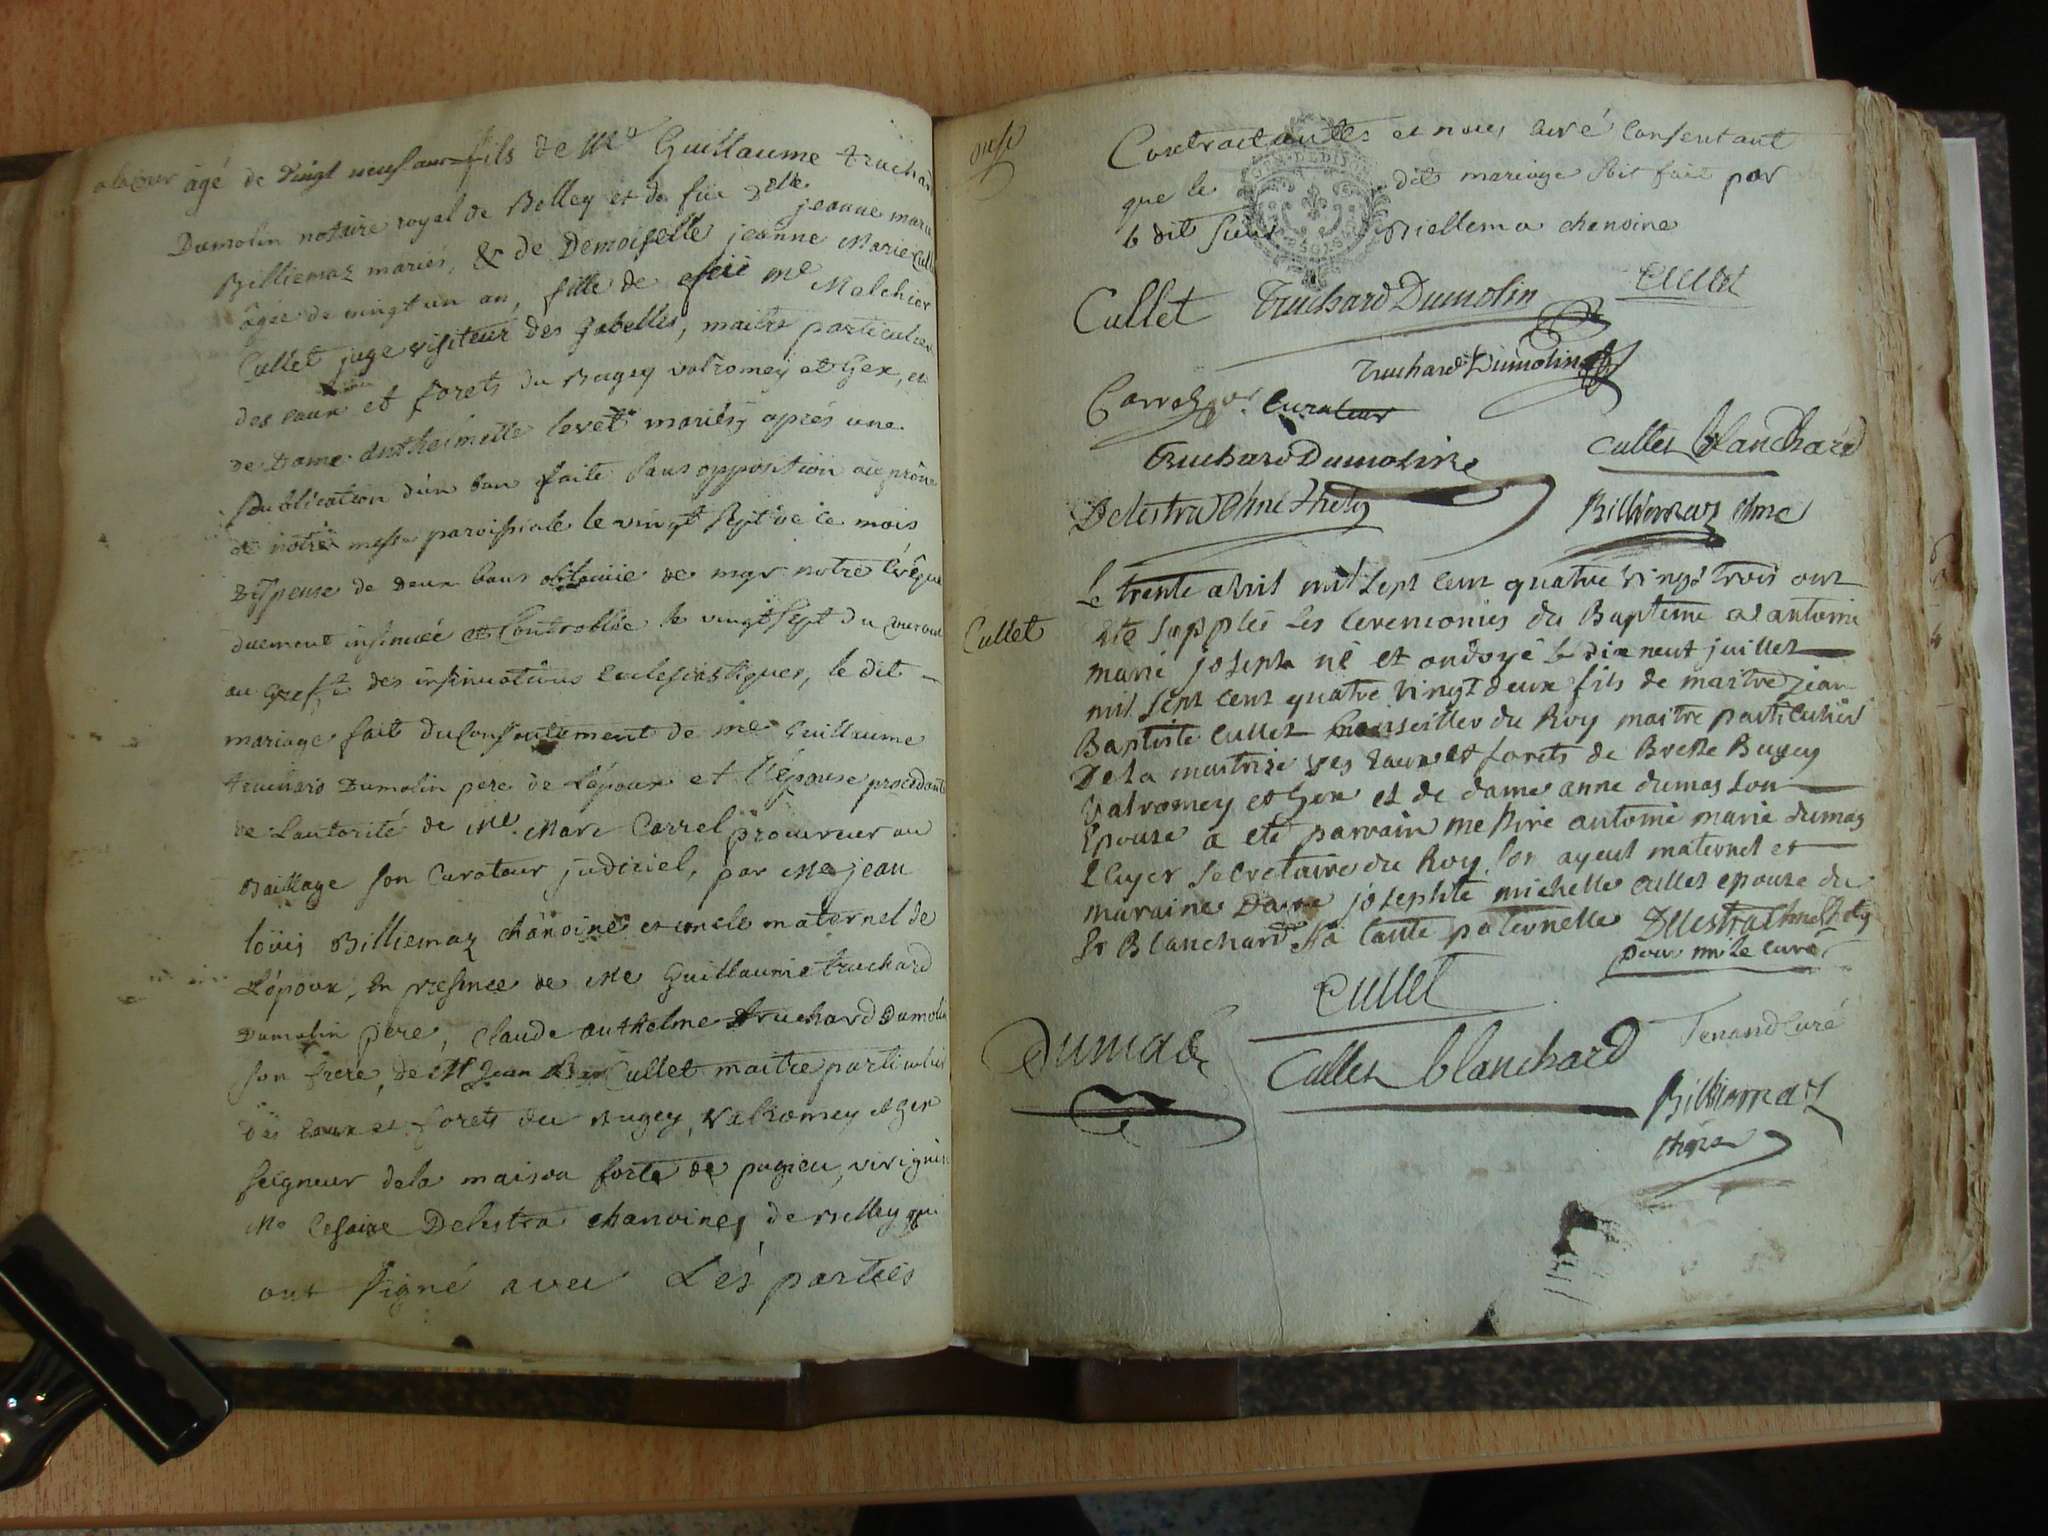 a la Cour agé de vingt neuf ans fils de Me Guillaume truchard
Dumolin notaire royal de Belley et de füe Delle jeanne marie
Billiemaz mariés, & de Demoiselle jeanne Marie Cullet
agée de vingt un an, fille de feü me Melchior
Cullet juge visiteur des gabelles, maitre particulier
des eaux et forets du Bugey valromey et Gex, et
de Dame Anthelmette levet mariés, après une
publication d'un ban faite sans opposition au prône
de nôtre messe paroissiale le vingt sept de ce mois
dispense de deux bans obtenüe de mgr nôtre Evêque
duement insinuée et Controllée le vingt sept du courant
au greffe des insinuations Ecclesiastiques, le dit
mariage fait du consentement de me Guillaume
truchard Dumolin pere de l'époux et l'épouse procedante
de l'autorité de Me Marc Carrel procureur au
Baillage son Curateur judiciel, par Me jean
loüis Billiemaz chanoine et oncle maternel de
L'époux, en presence de Me Guillaume truchard
Dumolin pere, Claude anthelme truchard Dumolin
son frere, de Mr jean Bap Cullet maitre particulier
des eaux et forets du Bugey, Valromey et Gex
seigneur de la maison forte de pugieu, virignin
Me Cesaire Delestra chanoines de Belley qui
ont signé avec Les parties
Contractantes et nous curé consentant
que le dit mariage soit fait par
le dit sieur Billiema chanoine
Cullet Truchard Dumolin Cullet
Truchard Dumolin
Carrel Curateur
Truchard Dumolin Cullet blanchard
Delestra Chne Billiemaz chne
Le trente avril mil sept cent quatre vingt trois ont
Cullet
été supplée les ceremonies du Baptême a antoine
marie joseph né et ondoyé le dix neuf juillet
mil sept cent quatre vingt deux fils de maitre jean
Baptiste Cullet Conseiller du Roy maitre particulier
De la maitrise des Eaux et forets de Bresse Bugey
Valromey et Gex et de dame anne dumas son
Epouse a eté parrain messire antoine marie dumas
Ecuyer secretaire du Roy son ayeul maternel et
maraine Dame josephte michelle Cullet epouse du
Sr Blanchard sa tante paternelle Delestra Chne
pour mr le curé
Cullet
Dumas
Cullet blanchard
Tenand Curé
Billiemaz
chne